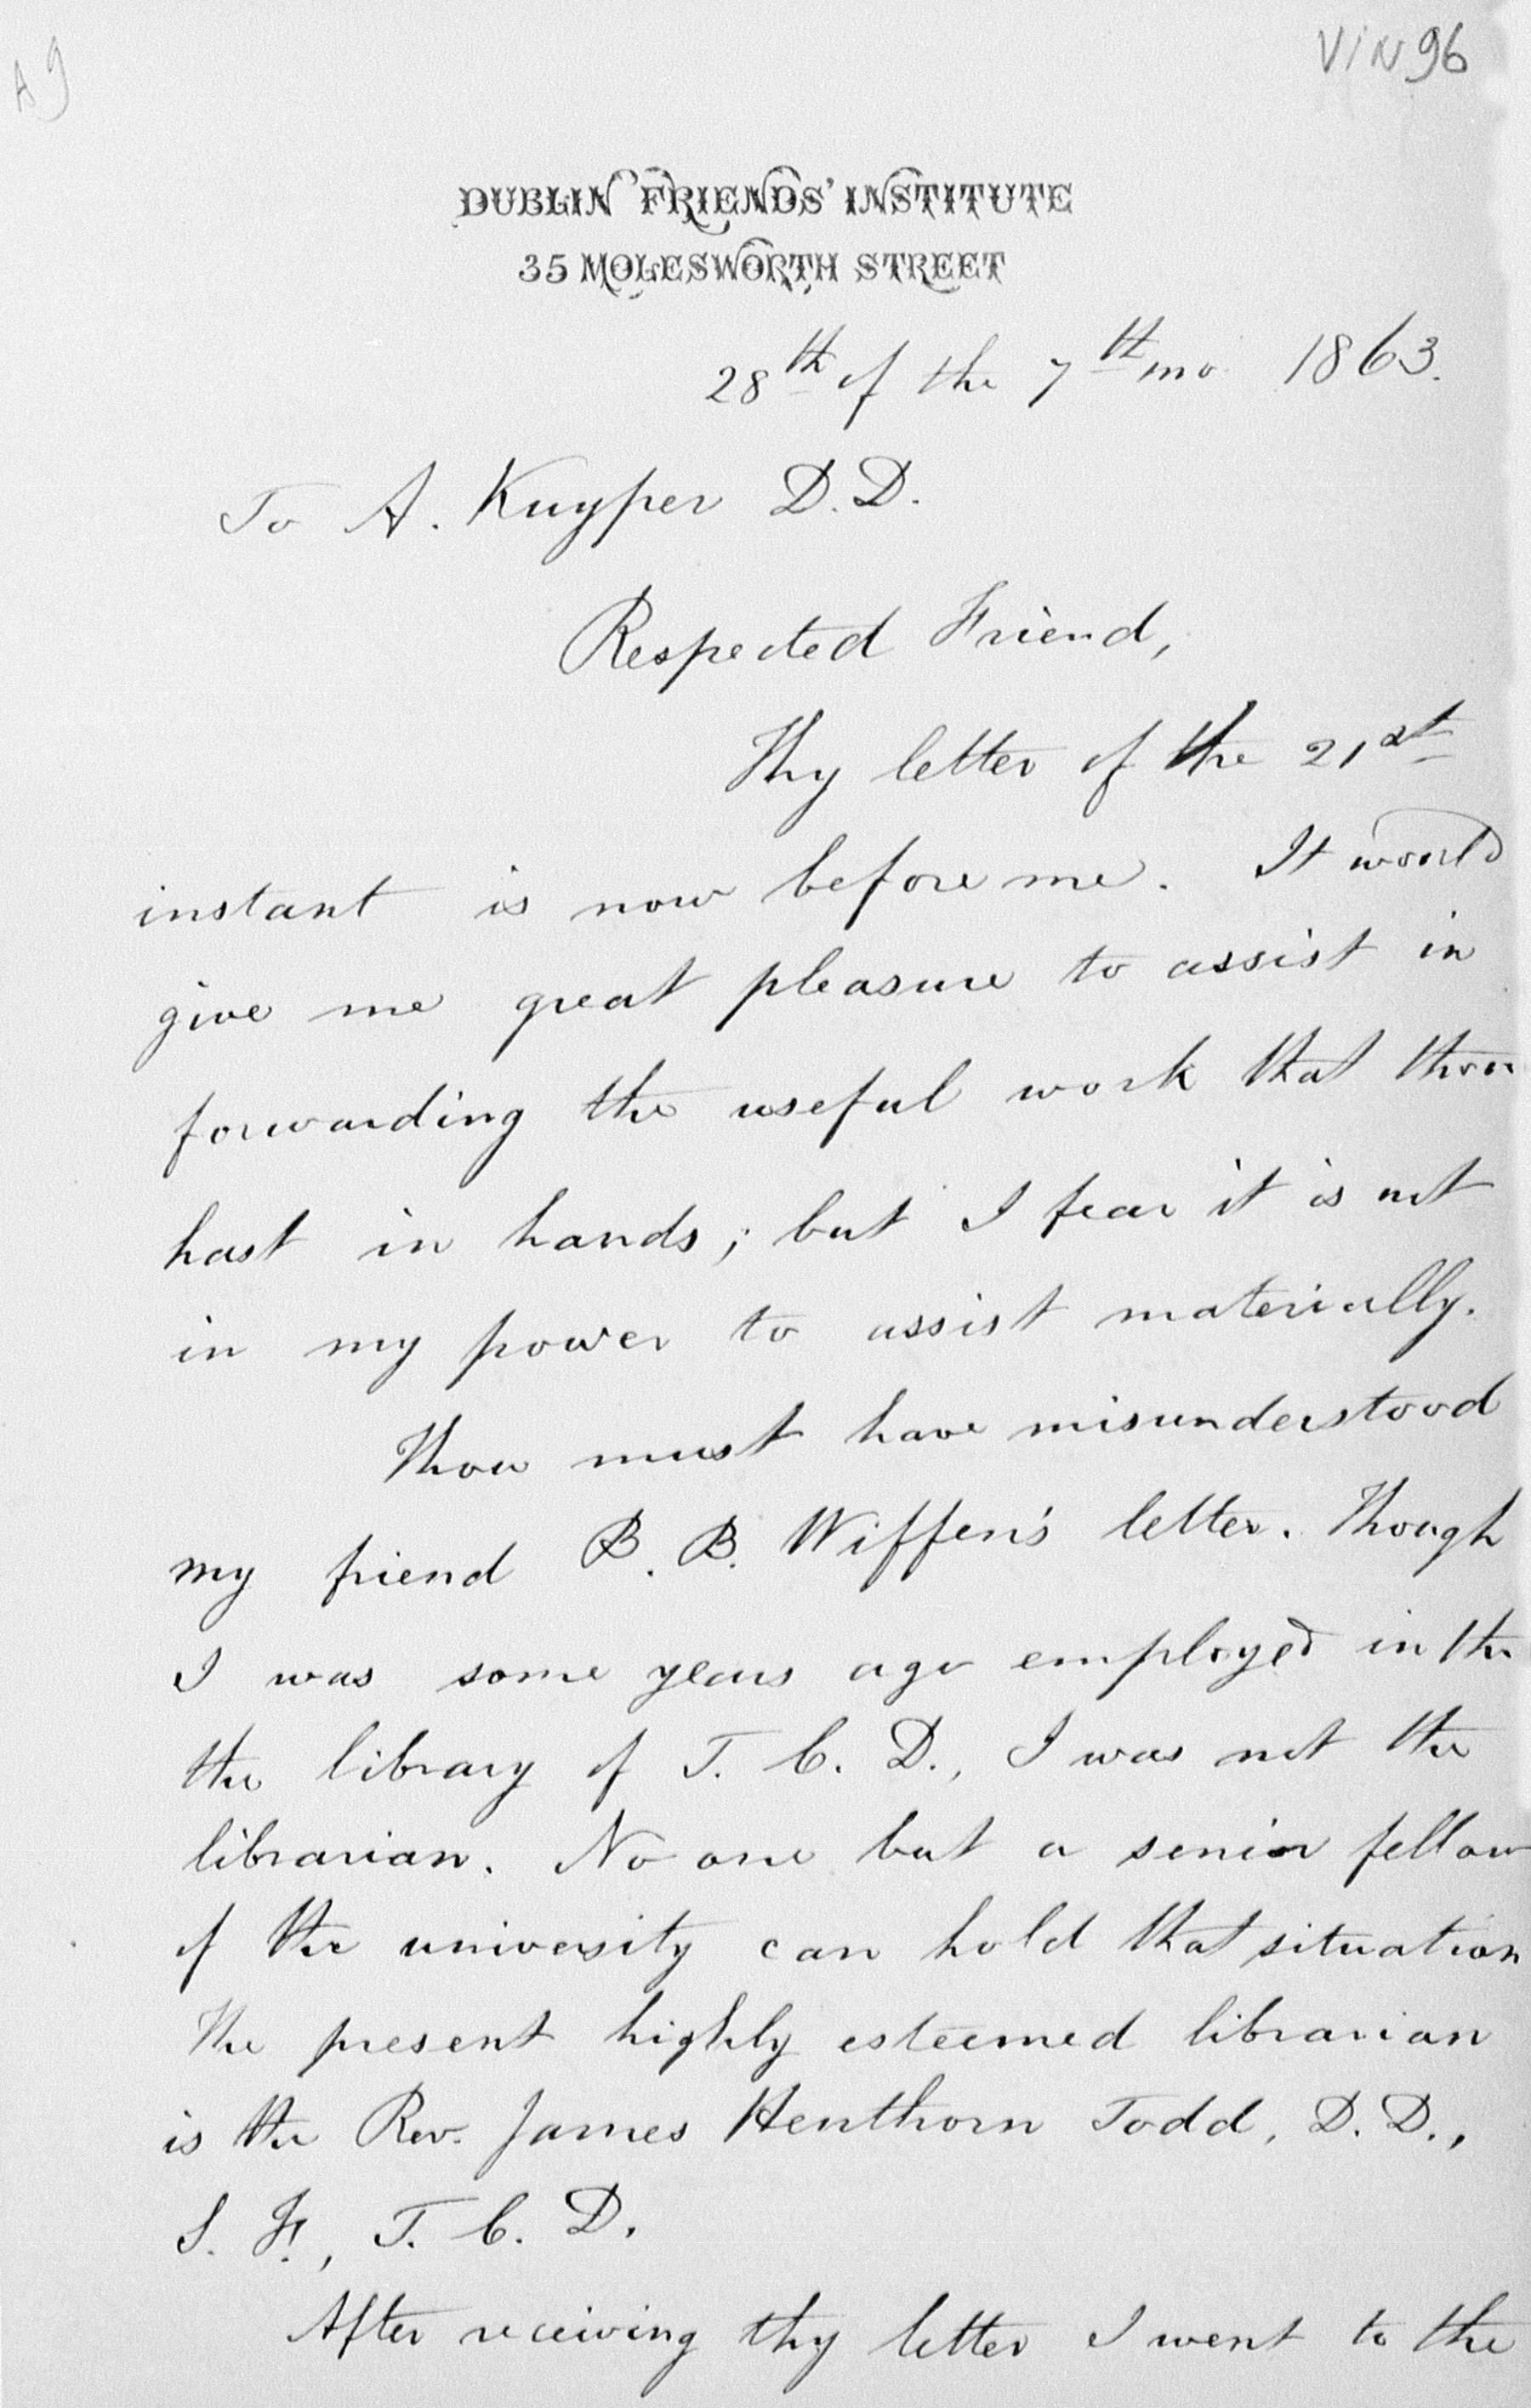 A9
VIN 96
DUBLIN FRIENDS' INSTITUTE
35 MOLESWORTH STREET
28th of the 7th mo 1863.
To A. Kuyper D.D.
Respected Friend,
Thy letter of the 21st
instant is now before me. It would
give me great pleasure to assist in
forwarding the useful work that thou
hast in hands; but I fear it is not
in my power to assist materially.
Thou must have misunderstood
my friend B. B. Wiffen's letter. Though
I was some years ago employed in the
the library of T. C. D., I was not the
librarian. No one but a senior fellow
of the university can hold that situation
The present highly esteemed librarian
is the Rev. James Henthorn Todd, D. D.,
S. F., T. C. D.
After receiving thy letter I went to the